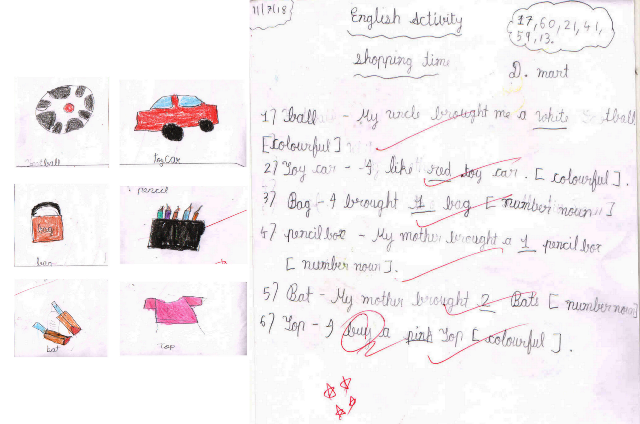 football
toy car
bag
bag
pencil
bat
Top
11/7/18
English Activity
17, 60, 21, 41,
59, 13.
Shopping time
D. mart
1) ball - My uncle brought me a white football
[colourful]
2) Toy car - I like red toy car. [colourful].
3) Bag - I brought 1 bag [number noun]
4) pencil box - My mother brought a 1 pencil box
[number noun].
5) Bat - My mother brought 2 Bats [number noun]
6) Top - I buy a pink Top [colourful].